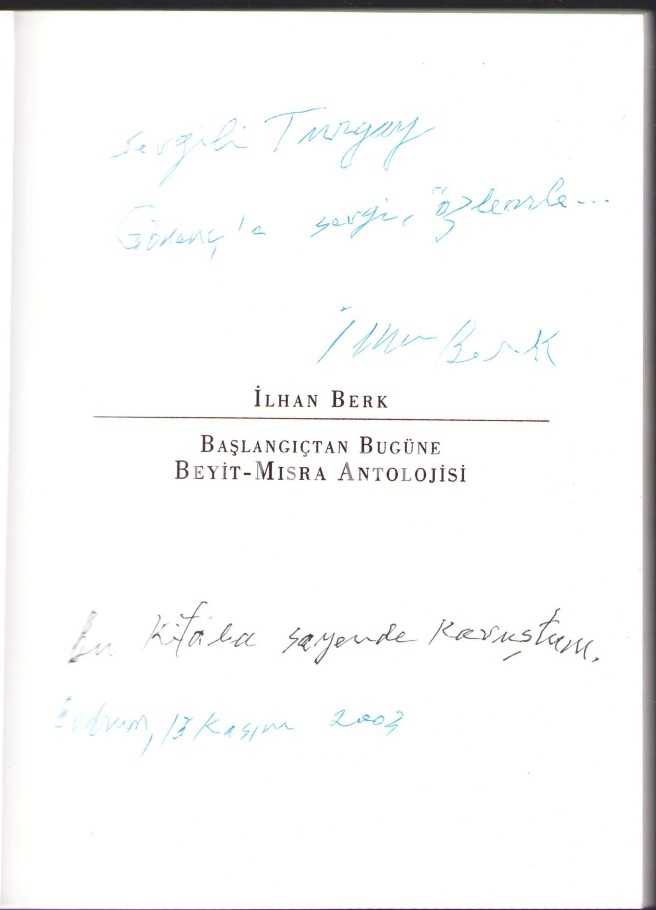 Sevgili Turgay
Gönenç'e sevgi, özlemle...
İlhan Berk
İLHAN BERK
BAŞLANGIÇTAN BUGÜNE
BEYİT-MISRA ANTOLOJİSİ
Bu kitaba sayende kavuştum.
Bodrum, Kasım 2003